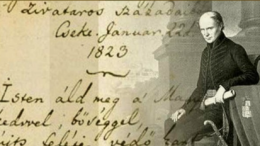 Zivataros Század
Cseke. Januar. 22d
1823
Isten áld meg a Ma
edvvel, bőséggel,
újts feléje védő